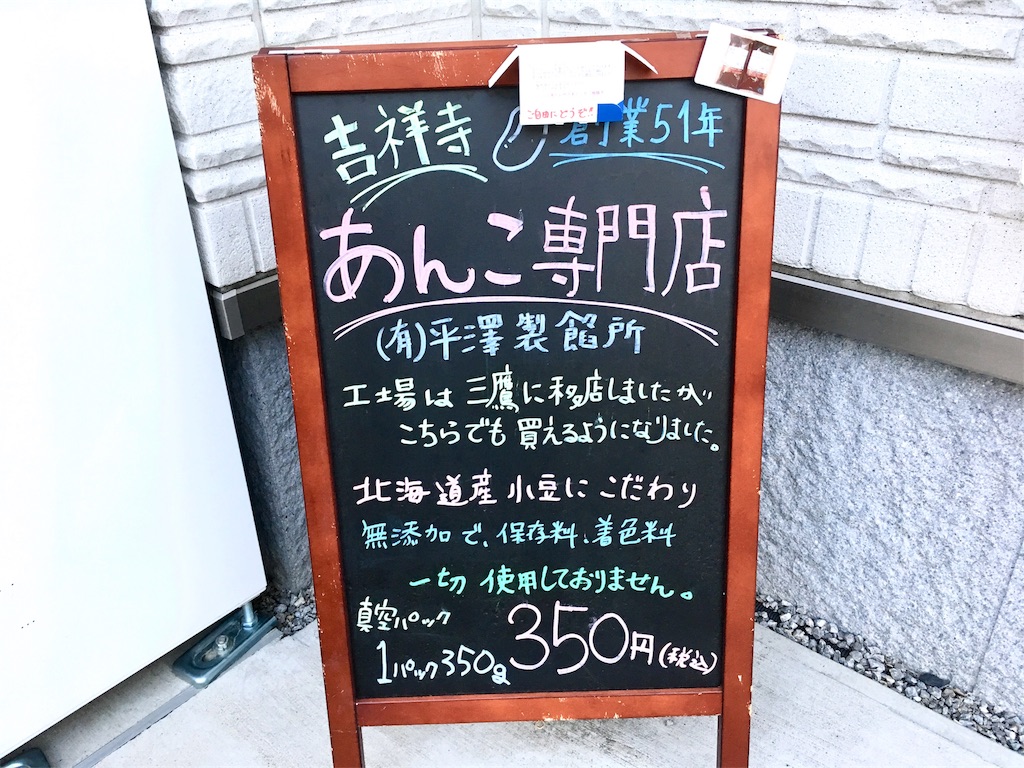 ご自由にどうぞ!!
吉祥寺 創業51年
あんこ専門店
(有)平澤製餡所
工場は三鷹に移店しましたが
こちらでも買えるようになりました。
北海道産小豆にこだわり
無添加で、保存料、着色料
一切使用しておりません。
真空パック
1パック350g 350円(税込)